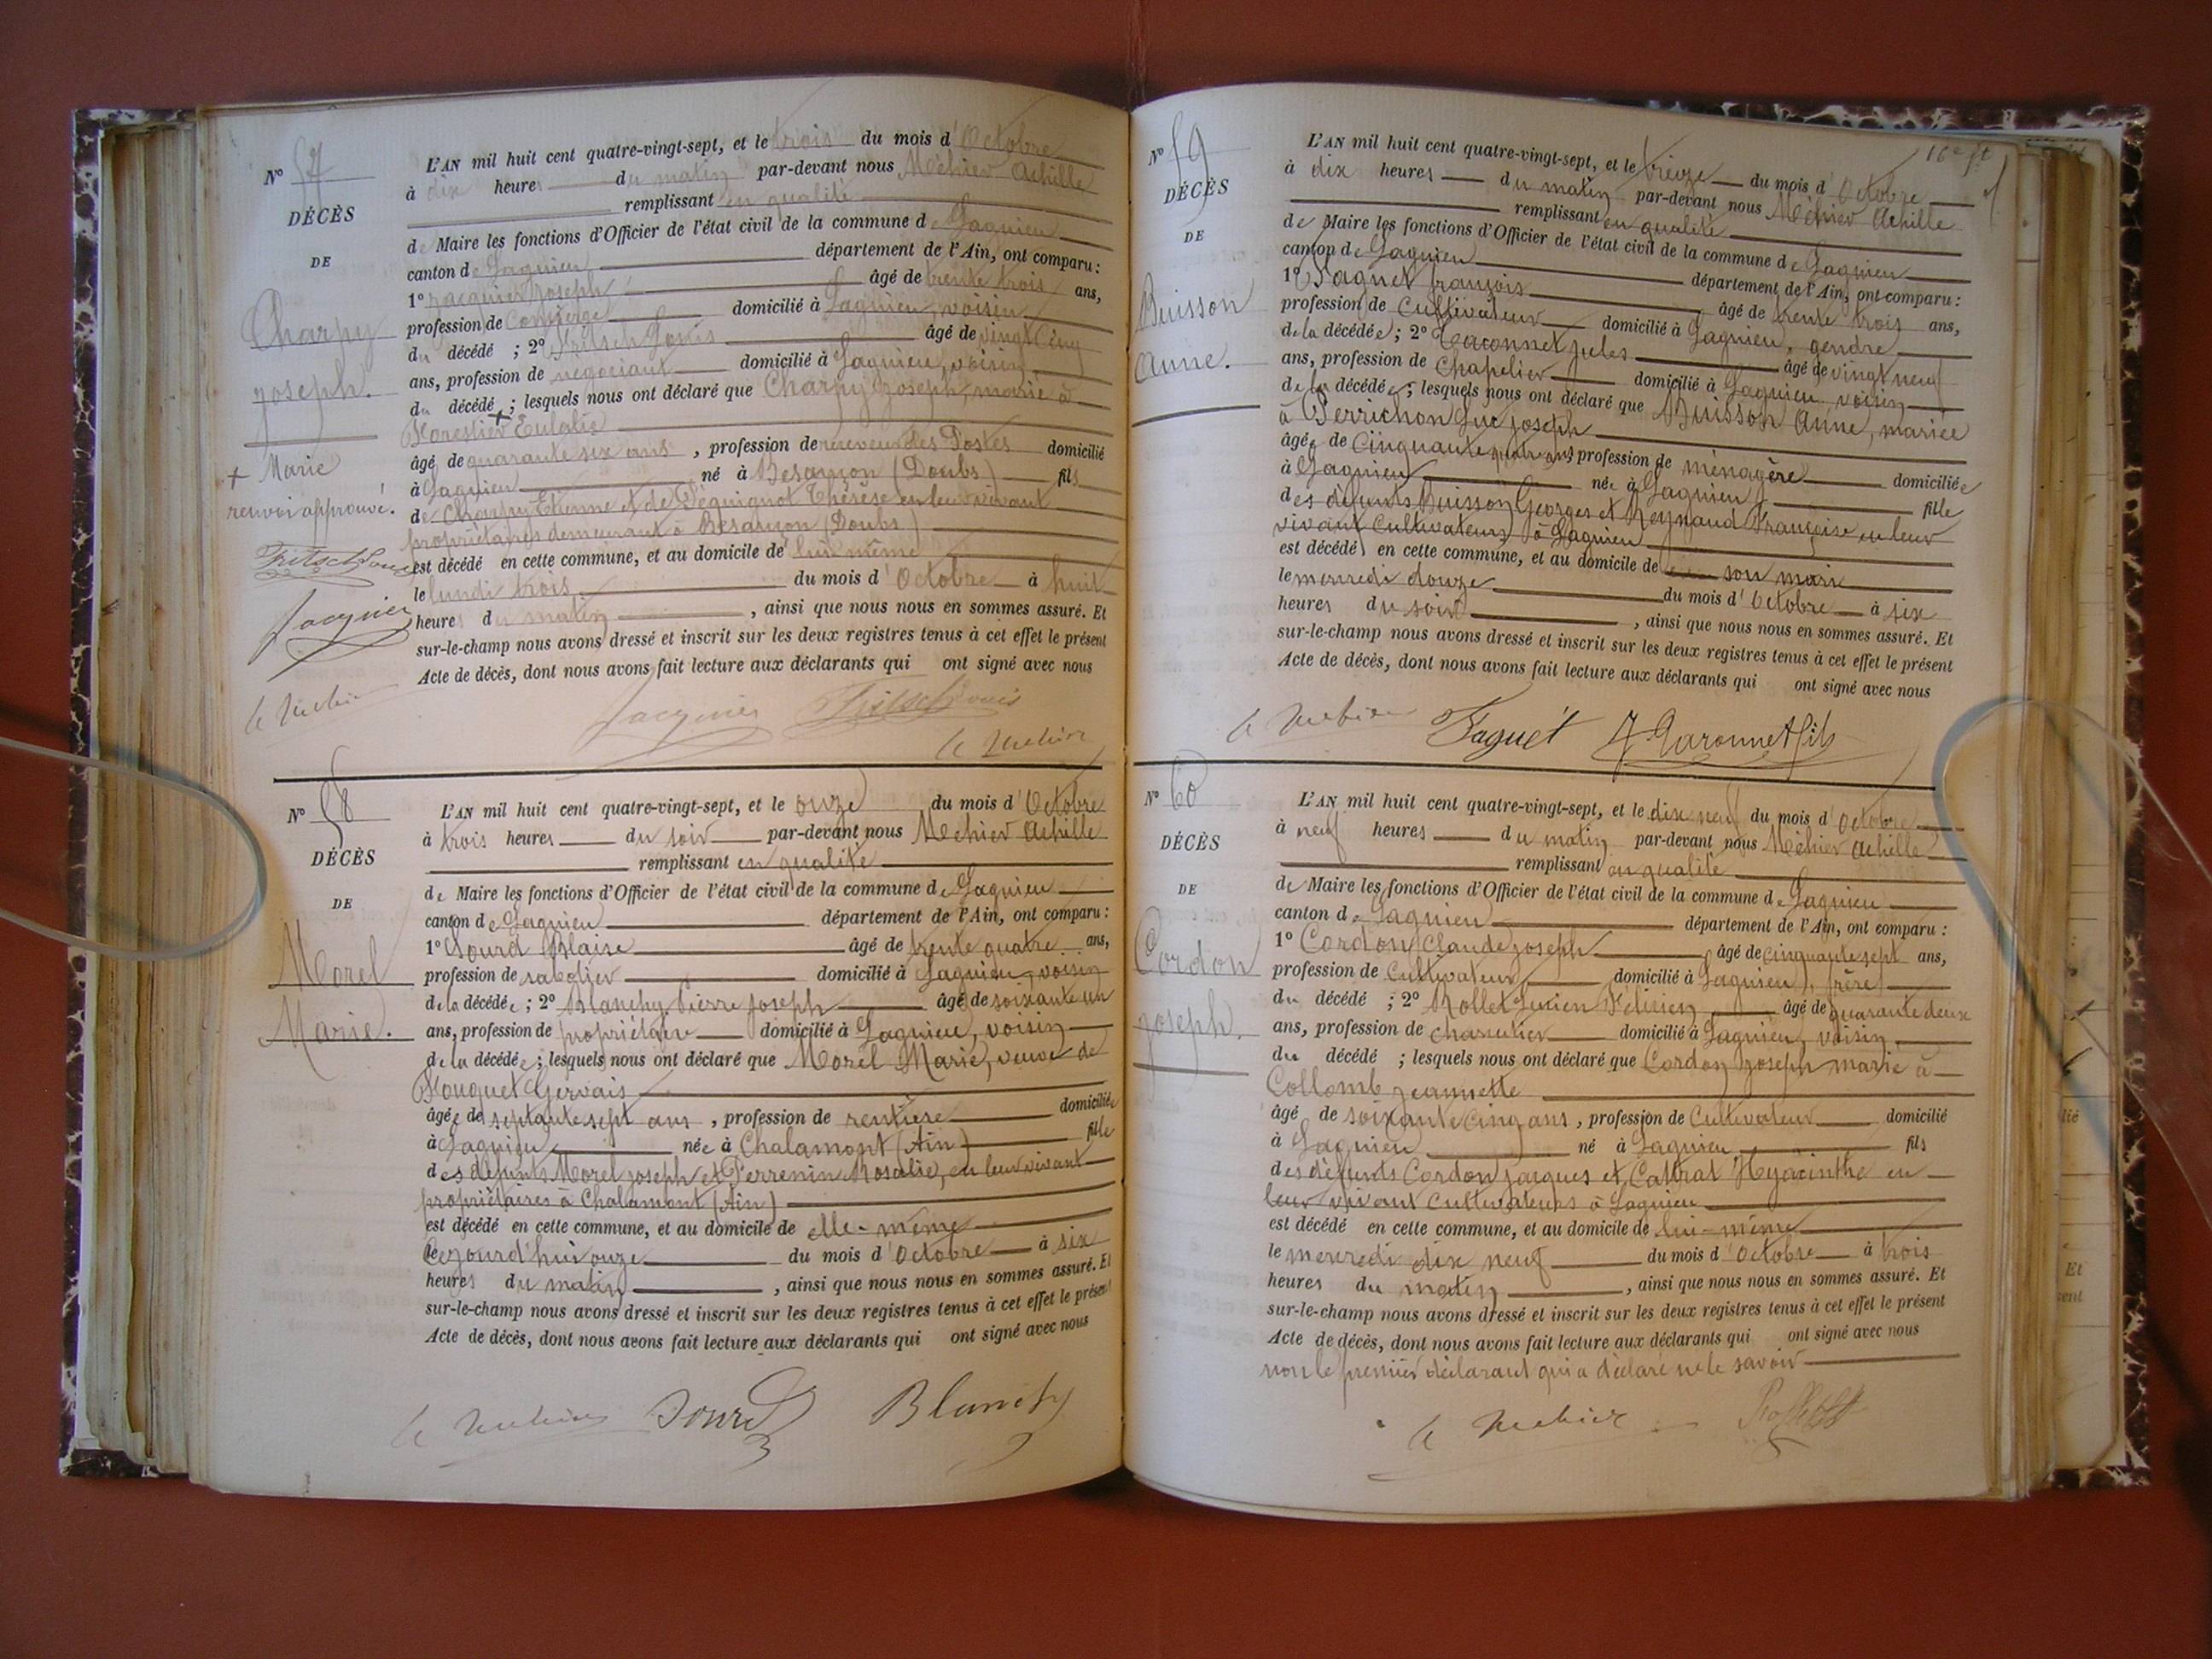 N° 57
DÉCÈS
DE
Charpy
Joseph.
+ Marie
renvoi approuvé.
Fritsch Louis
Jacquier
L'AN mil huit cent quatre-vingt-sept, et le trois du mois d'Octobre
à dix heures du matin par-devant nous Méhier Achille
remplissant en qualité
de Maire les fonctions d'Officier de l'état civil de la commune de Lagnieu
canton de Lagnieu département de l'Ain, ont comparu :
1° Jacquier Joseph âgé de trente trois ans,
profession de Concierge domicilié à Lagnieu, voisin
du décédé ; 2° Fritsch Louis âgé de vingt cinq
ans, profession de négociant domicilié à Lagnieu, voisin
du décédé ; lesquels nous ont déclaré que Charpy Joseph, marié à
Forestier + Eulalie
âgé de quarante six ans , profession de receveur des Postes domicilié
à Lagnieu né à Besançon (Doubs) fils
de Charpy Etienne et de Péquignot Thérèse en leur vivant
propriétaires demeurant à Besançon (Doubs)
est décédé en cette commune, et au domicile de lui même
le lundi trois du mois d'Octobre à huit
heure du matin , ainsi que nous nous en sommes assuré. Et
sur-le-champ nous avons dressé et inscrit sur les deux registres tenus à cet effet le présent
Acte de décès, dont nous avons fait lecture aux déclarants qui ont signé avec nous
Jacquier Fritsch Louis
N° 58
DÉCÈS
DE
Morel
Marie.
L'AN mil huit cent quatre-vingt-sept, et le onze du mois d'Octobre
à trois heures du soir par-devant nous Méhier Achille
remplissant en qualité
de Maire les fonctions d'Officier de l'état civil de la commune de Lagnieu
canton de Lagnieu département de l'Ain, ont comparu :
1° Sourd Blaise âgé de trente quatre ans,
profession de sabotier domicilié à Lagnieu, voisin
de la décédée ; 2° Blanchy Pierre Joseph âgé de soixante un
ans, profession de propriétaire domicilié à Lagnieu, voisin
de la décédée ; lesquels nous ont déclaré que Morel Marie, veuve de
Fouquet Gervais
âgée de septante sept ans , profession de rentière domiciliée
à Lagnieu née à Chalamont (Ain) fille
des défunts Morel Joseph et Perrenin Rosalie, en leur vivant
propriétaires à Chalamont (Ain)
est décédé en cette commune, et au domicile de elle-même
le cejourd'hui onze du mois d'Octobre à six
heures du matin , ainsi que nous nous en sommes assuré. Et
sur-le-champ nous avons dressé et inscrit sur les deux registres tenus à cet effet le présent
Acte de décès, dont nous avons fait lecture aux déclarants qui ont signé avec nous
Sourd Blanchy
N° 59
DÉCÈS
DE
Buisson
Anne.
L'AN mil huit cent quatre-vingt-sept, et le treize du mois d'Octobre
à dix heures du matin par-devant nous Méhier Achille
remplissant en qualité
de Maire les fonctions d'Officier de l'état civil de la commune de Lagnieu
canton de Lagnieu département de l'Ain, ont comparu :
1° Faguet François âgé de trente trois ans,
profession de Cultivateur domicilié à Lagnieu, gendre
de la décédée ; 2° Garonnet Jules âgé de vingt neuf
ans, profession de Chapelier domicilié à Lagnieu voisin
de la décédée ; lesquels nous ont déclaré que Buisson Anne, mariée
à Perrichon Luc Joseph
âgée de Cinquante quatre ans profession de ménagère domiciliée
à Lagnieu née à Lagnieu fille
des défunts Buisson Georges et Reynaud Françoise en leur
vivant Cultivateurs à Lagnieu
est décédé en cette commune, et au domicile de son mari
le mercredi douze du mois d'Octobre à six
heures du soir , ainsi que nous nous en sommes assuré. Et
sur-le-champ nous avons dressé et inscrit sur les deux registres tenus à cet effet le présent
Acte de décès, dont nous avons fait lecture aux déclarants qui ont signé avec nous
Faguet J. Garonnet fils
N° 60
DÉCÈS
DE
Cordon
Joseph.
L'AN mil huit cent quatre-vingt-sept, et le dix neuf du mois d'Octobre
à neuf heures du matin par-devant nous Méhier Achille
remplissant en qualité
de Maire les fonctions d'Officier de l'état civil de la commune de Lagnieu
canton de Lagnieu département de l'Ain, ont comparu :
1° Cordon Claude Joseph âgé de cinquante sept ans,
profession de Cultivateur domicilié à Lagnieu, frère
du décédé ; 2° Rollet Lucien Félicien âgé de quarante deux
ans, profession de charcutier domicilié à Lagnieu, voisin
du décédé ; lesquels nous ont déclaré que Cordon Joseph marié à
Collomb Jeannette
âgé de soixante cinq ans , profession de Cultivateur domicilié
à Lagnieu né à Lagnieu fils
des défunts Cordon Jacques et Cattrat Hyacinthe en
leur vivant Cultivateurs à Lagnieu
est décédé en cette commune, et au domicile de lui-même
le mercredi dix neuf du mois d'Octobre à trois
heures du matin , ainsi que nous nous en sommes assuré. Et
sur-le-champ nous avons dressé et inscrit sur les deux registres tenus à cet effet le présent
Acte de décès, dont nous avons fait lecture aux déclarants qui ont signé avec nous
non le premier déclarant qui a déclaré ne le savoir